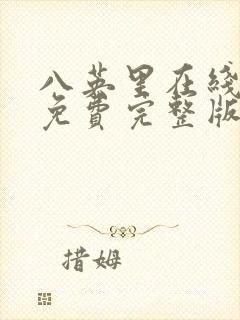 八英里在綫
免費完整版
措姆